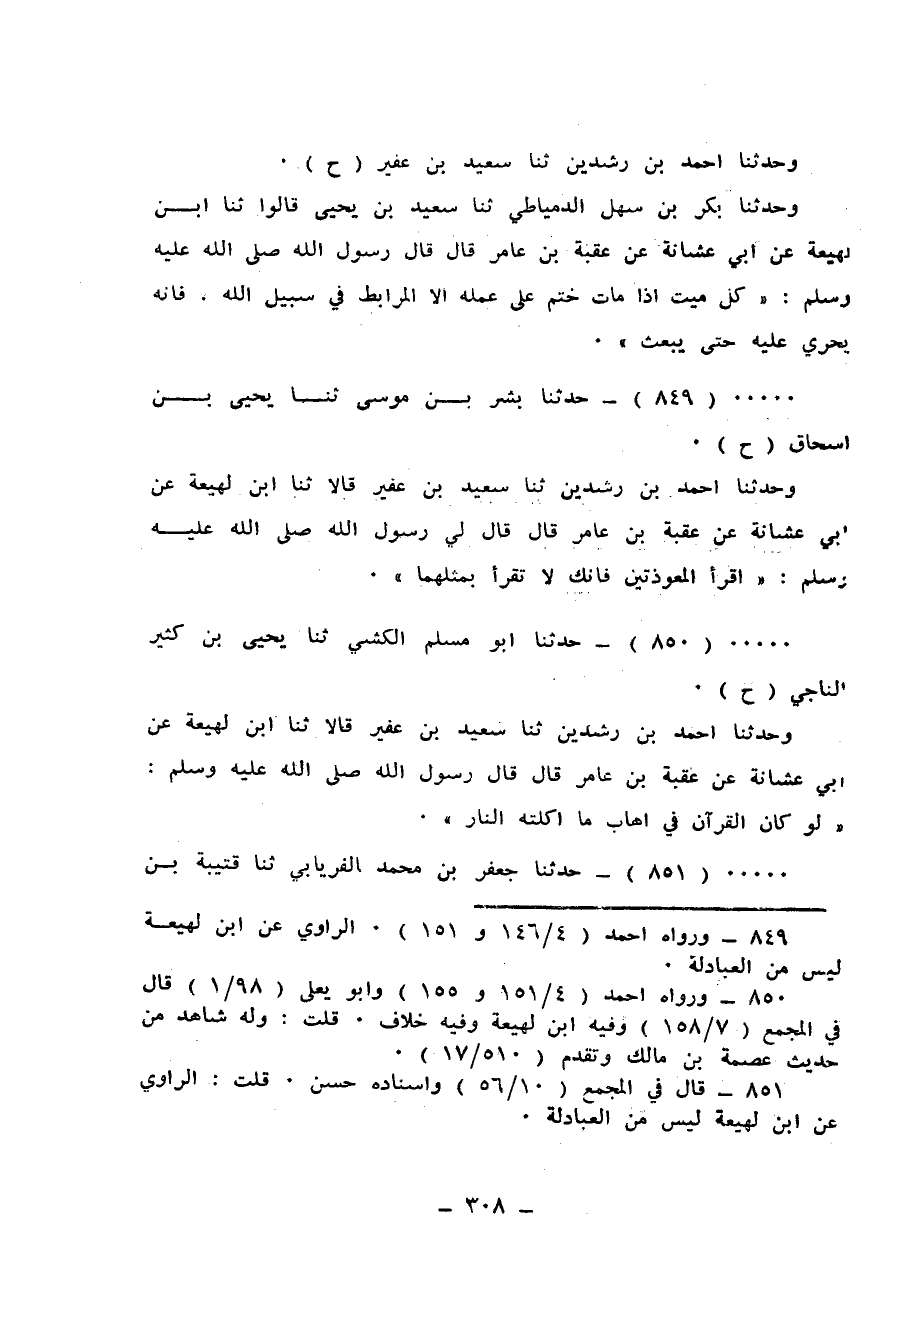 وحدثنا احمد بن رشدين ثنا سعيد بن عفير ( ح ) ٠
وحدثنا بكر بن سهل الدمياطي ثنا سعيد بن يحيى قالوا ثنا ابن
لهيعة عن ابي عشانة عن عقبة بن عامر قال قال رسول الله صلى الله عليه
وسلم : « كل ميت اذا مات ختم على عمله الا المرابط في سبيل الله ، فانه
يجري عليه حتى يبعث » ٠
٠٠٠٠٠ ( ٨٤٩ ) ـ حدثنا بشر بن موسى ثنا يحيى بن
اسحاق ( ح ) ٠
وحدثنا احمد بن رشدين ثنا سعيد بن عفير قالا ثنا ابن لهيعة عن
ابي عشانة عن عقبة بن عامر قال قال لي رسول الله صلى الله عليه
وسلم : « اقرأ المعوذتين فانك لا تقرأ بمثلهما » ٠
٠٠٠٠٠ ( ٨٥٠ ) ـ حدثنا ابو مسلم الكشي ثنا يحيى بن كثير
الناجي ( ح ) ٠
وحدثنا احمد بن رشدين ثنا سعيد بن عفير قالا ثنا ابن لهيعة عن
ابي عشانة عن عقبة بن عامر قال قال رسول الله صلى الله عليه وسلم :
« لو كان القرآن في اهاب ما اكلته النار » ٠
٠٠٠٠٠ ( ٨٥١ ) ـ حدثنا جعفر بن محمد الفريابي ثنا قتيبة بن
٨٤٩ ـ ورواه احمد ( ١٤٦/٤ و ١٥١ ) ٠ الراوي عن ابن لهيعة
ليس من العبادلة ٠
٨٥٠ ـ ورواه احمد ( ١٥١/٤ و ١٥٥ ) وابو يعلى ( ١/٩٨ ) قال
في المجمع ( ١٥٨/٧ ) وفيه ابن لهيعة وفيه خلاف ٠ قلت : وله شاهد من
حديث عصمة بن مالك وتقدم ( ١٧/٥١٠ ) ٠
٨٥١ ـ قال في المجمع ( ٥٦/١٠ ) واسناده حسن ٠ قلت : الراوي
عن ابن لهيعة ليس من العبادلة ٠
ـ ٣٠٨ ـ